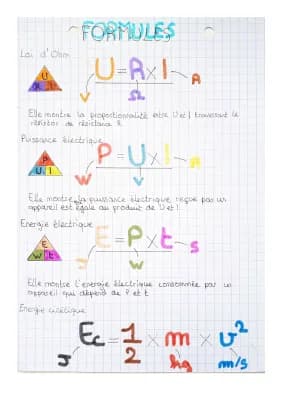 FORMULES
Loi d'Ohm
U
R I
U = R x I
V Ω A
Elle montre la proportionnalité entre U et I traversant le
résistor de résistance R.
Puissance électrique
P
U I
P = U x I
W V A
Elle montre la puissance électrique reçue par un
appareil est égale au produit de U et I.
Energie électrique
E
W t
E = P x t
J W s
Elle montre l'énergie électrique consommée par un
appareil qui dépend de P et t.
Energie cinétique
Ec = 1/2 x m x v²
J kg m/s